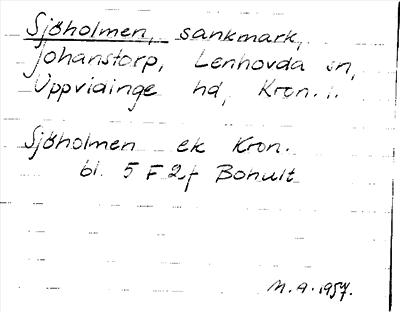 Sjöholmen, sankmark,
Johanstorp, Lenhovda sn,
Uppvidinge hd, Kron. l.
Sjöholmen ek Kron.
bl. 5 F 2f Bohult
M.A. 1957.